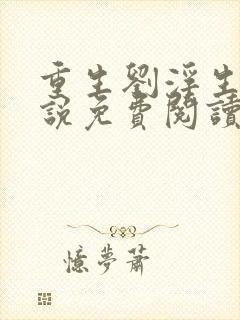 重生劉淫生
說免費閱讀
憶夢蕭